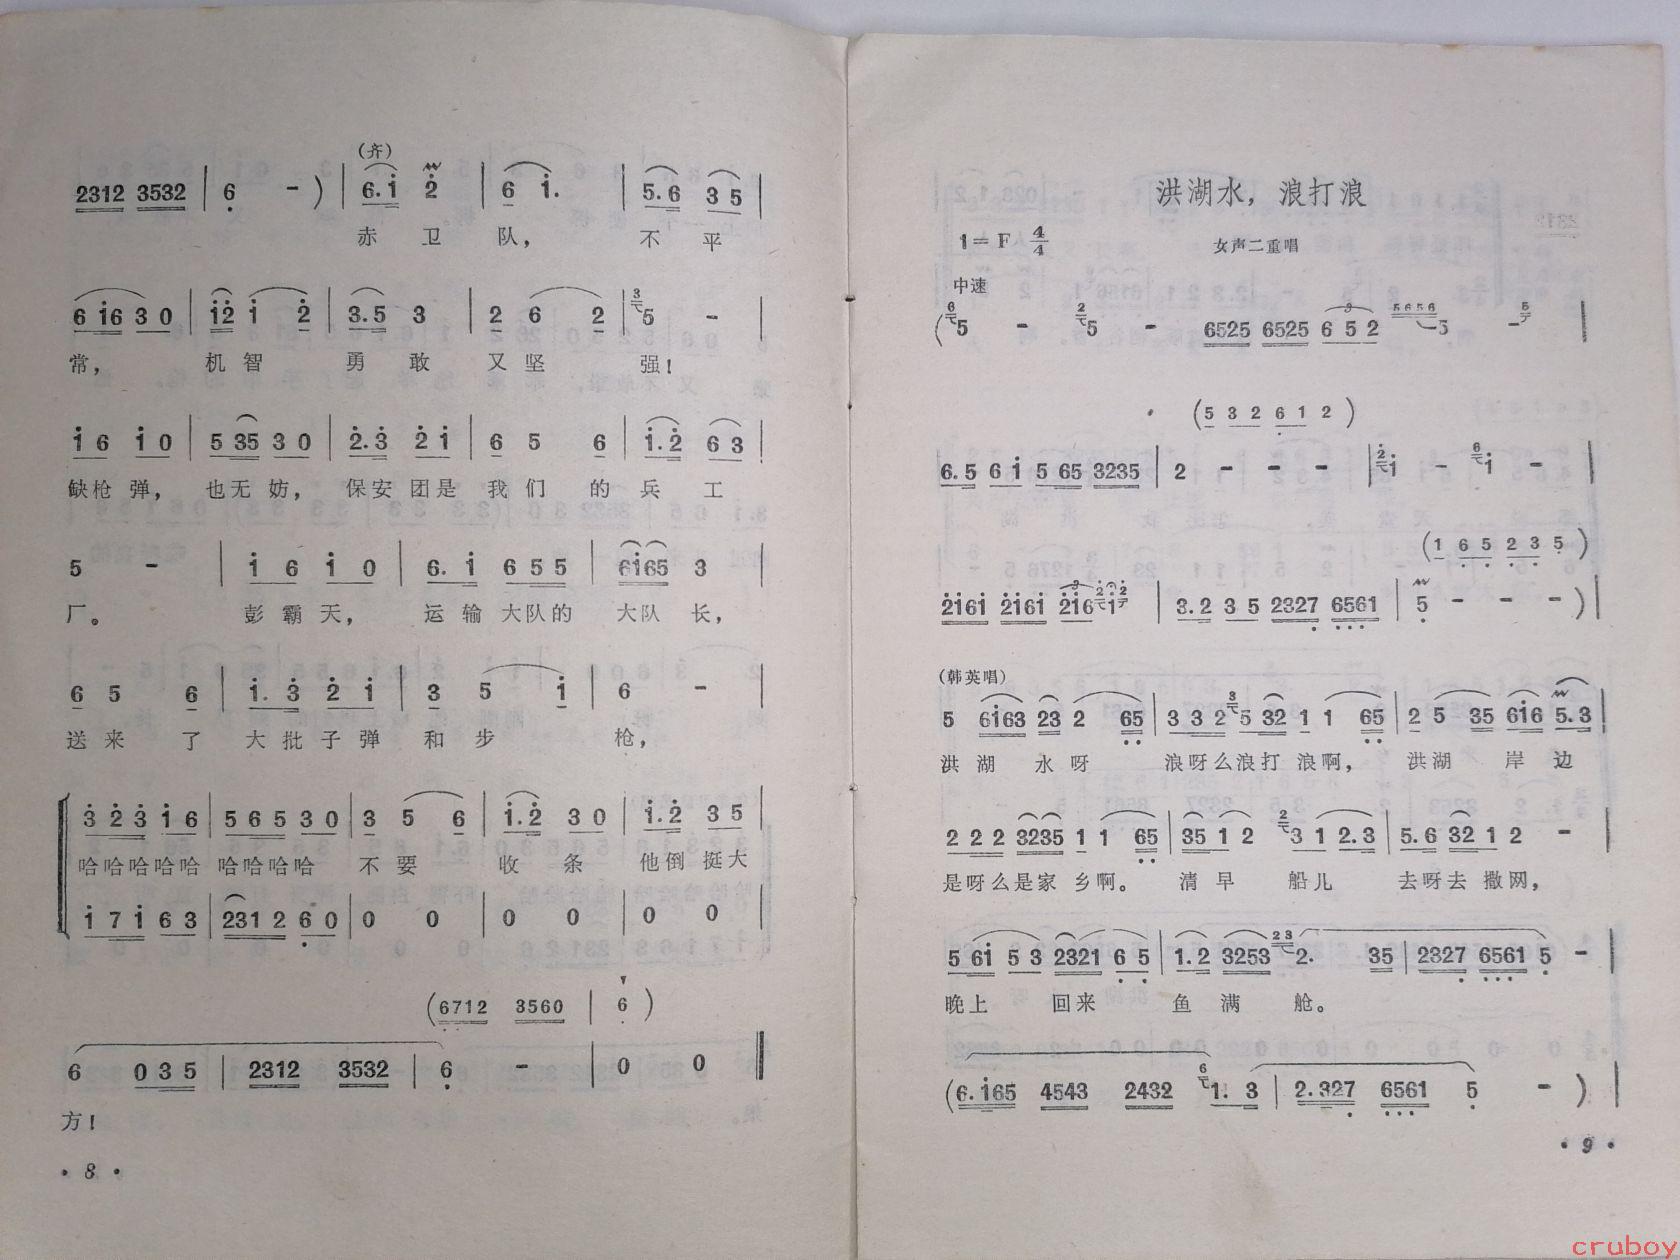 2312 3532 | 6 - ) | 6.i 2 | 6 i. | 5.6 3 5 |
(齐)
赤 卫 队， 不 平
6 i6 3 0 | i2 i 2 | 3.5 3 | 2 6 2 | 3 5 - |
常， 机 智 勇 敢 又 坚 强！
i 6 i 0 | 5 35 3 0 | 2.3 2 i | 6 5 6 | i.2 6 3 |
缺枪 弹， 也无 妨， 保安 团是 我 们 的 兵 工
5 - | i 6 i 0 | 6. i 6 5 5 | 6i65 3 |
厂。 彭 霸 天， 运 输 大队的 大队 长，
6 5 6 | i. 3 2 i | 3 5 i | 6 - |
送 来 了 大 批 子 弹 和 步 枪，
3 2 3 i 6 | 5 6 5 3 0 | 3 5 6 | i.2 3 0 | i.2 3 5 |
哈哈哈哈哈 哈哈哈哈 不 要 收 条 他倒 挺大
i 7 i 6 3 | 231 2 6 0 | 0 0 | 0 0 | 0 0 |
(6712 3560 | 6 )
6 0 3 5 | 2312 3532 | 6 - | 0 0 ‖
方！
· 8 ·
洪湖水，浪打浪
1 = F 4/4
女声二重唱
中速
( 6 5 - 2 5 - 6525 6525 3 6 5 2 5656 5 - 5 |
(5 3 2 6 1 2 )
6.5 6 i 5 65 3235 | 2 - - - | 2 i - 6 i - |
(1 6 5 2 3 5 )
2i6i 2i6i 3 2i6 2 i 2 | 3.2 3 5 2327 6561 | 5 - - - ) |
(韩英唱)
5 6i63 23 2 65 | 3 3 2 3 5 32 1 1 65 | 2 5 35 6i6 5.3 |
洪 湖 水 呀 浪呀么浪打 浪啊， 洪湖 岸 边
2 2 2 3235 1 1 65 | 35 1 2 2 3 1 2.3 | 5.6 32 1 2 - |
是呀么是家 乡啊。 清 早 船儿 去呀去 撒网，
5 6i 5 3 2321 6 5 | 1.2 3253 23 2. 35 | 2327 6561 5 - |
晚上 回来 鱼 满 舱。
(6.i65 4543 2432 6 1. 3 | 2.327 6561 5 - ) |
· 9 ·
cruboy